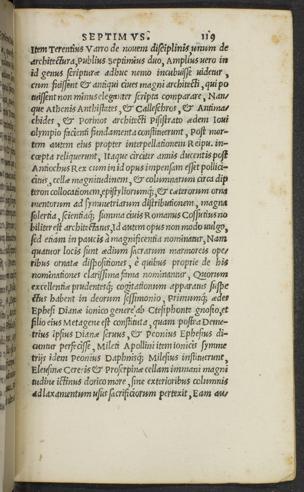 SEPTIMVS. 119
Item Terentius Varro de nouem disciplinis unum de
architectura, Publius Septimius duo, Amplius uero in
id genus scripturæ adhuc nemo incubuisse uidetur,
cum fuissent & antiqui ciues magni architecti, qui po
tuissent non minus eleganter scripta comparare, Nan⸗
que Athenis Antistates, & Callescbros, & Antima⸗
chides, & Porinos architecti Pisistrato ædem Ioui
olympio facienti fundamenta constituerunt, Post mor⸗
tem autem eius propter interpellationem Reipu. in⸗
cœpta reliquerunt, Itaque circiter annis ducentis post
Antiochus Rex cum in id opus impensam esset pollici⸗
citus, cellæ magnitudinem, & columnarum circa dip
teron collocationem, epistyliorumq; & cæterorum orna
mentorum ad symmetriarum distributionem, magna
solertia, scientiaq; summa ciuis Romanus Cossutius no
biliter est architectatus, Id autem opus non modo uulgo,
sed etiam in paucis a magnificentia nominatur, Nam
quatuor locis sunt ædium sacrarum marmoreis ope⸗
ribus ornatæ dispositiones, è quibus proprie de his
nominationes clarissima fama nominantur, Quorum
excellentiæ prudentesq; cogitationum apparatus suspe
ctus habent in deorum sessimonio, Primumq; ædes
Ephesi Dianæ ionico genere ab Ctesiphonte gnosio, et
filio eius Metagene est constituta, quam postea Deme⸗
trius ipsius Dianæ seruus, & Peonius Ephesius di⸗
cuntur perfecisse, Mileti Apollini item ionicis symme
trijs idem Peonius Daphnisq; Milesius instituerunt,
Eleusinæ Cereris & Proserpinæ cellam immani magni
tudine ictinus dorico more, sine exterioribus columnis
ad laxamentum usus sacrificiorum pertexit, Eam au⸗